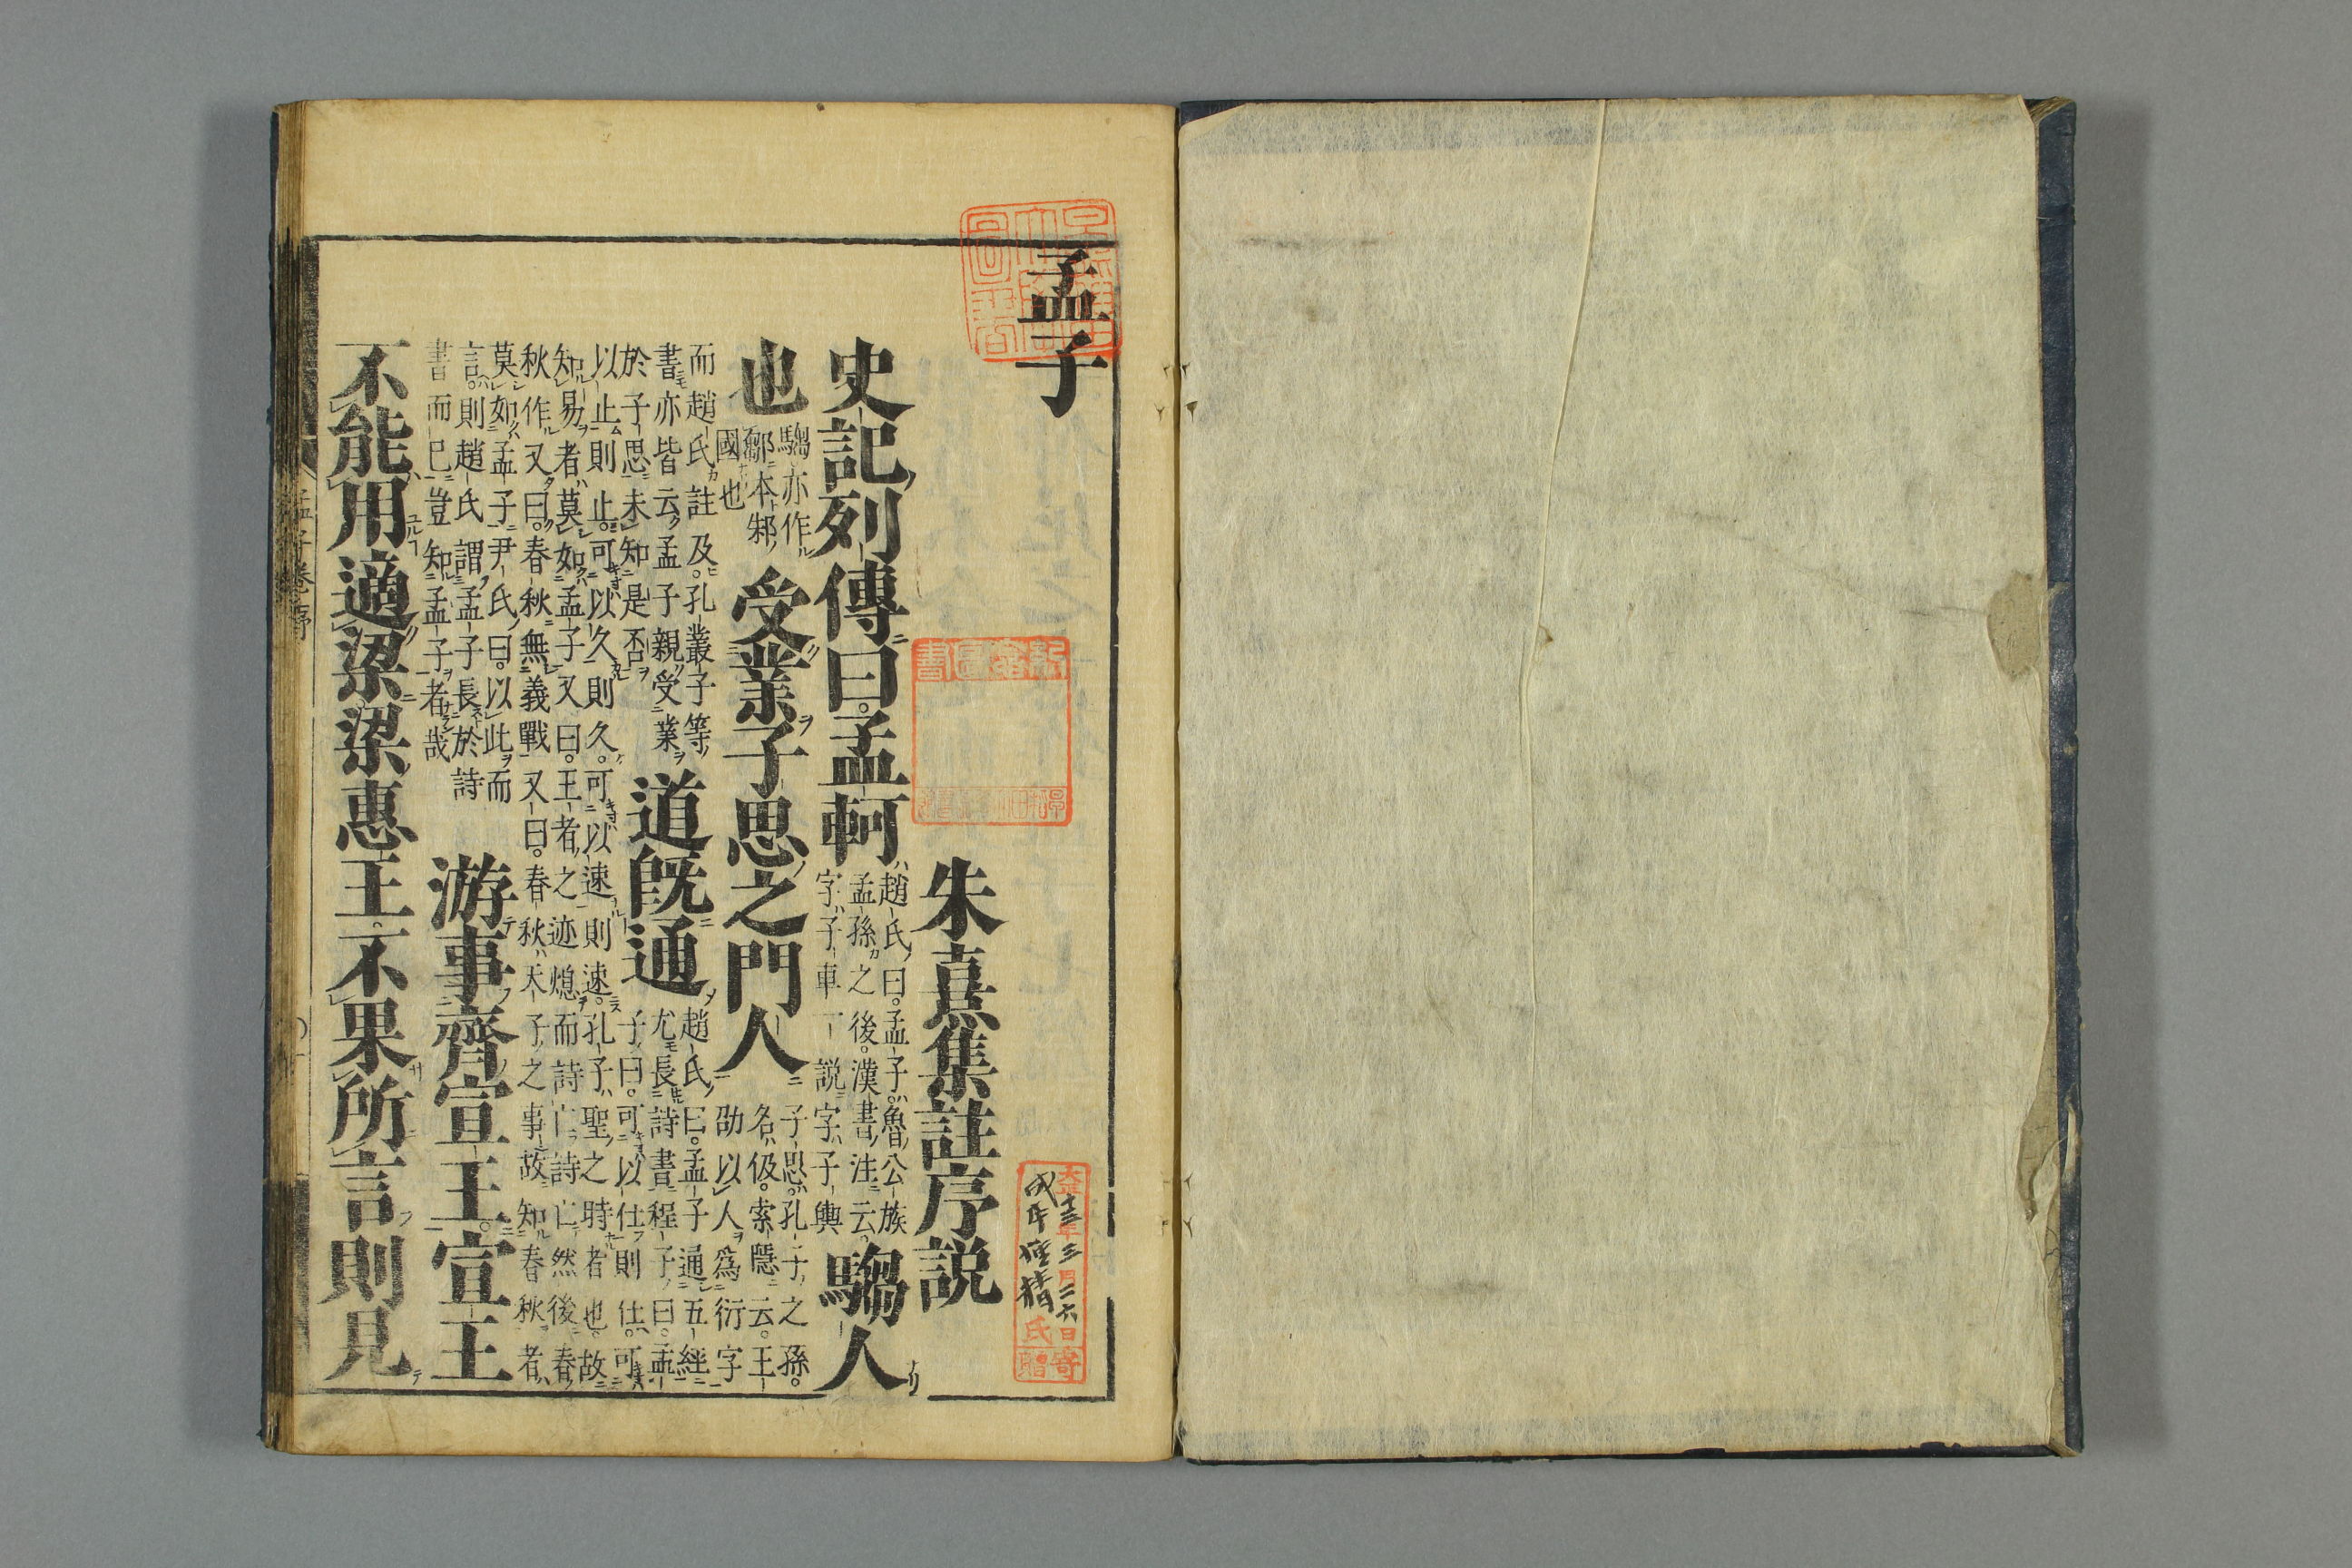 孟子
朱熹集註序説
史記列傳曰孟軻
趙氏曰孟子魯公族
孟孫之後漢書注云
字子車一説字子輿
騶人
也
騶亦作
鄒本邾
國也
受業子思之門人
子思孔子之孫
名伋索隱云王
劭以人爲衍字
而趙氏註及孔叢子等
書亦皆云孟子親受業
於子思未知是否
道既通
趙氏曰孟子通五經
尤長詩書程子曰孟
子曰可以仕則仕可
以止則止可以久則久可以速則速孔子聖之時者也故
知易者莫如孟子又曰王者之迹熄而詩亡詩亡然後春
秋作又曰春秋無義戰又曰春秋天子之事故知春秋者
莫如孟子尹氏曰以此而
言則趙氏謂孟子長於詩
書而已豈知孟子者哉
游事齊宣王宣王
不能用適梁梁惠王不果所言則見
孟子卷序
大正十三年三月二六日寄
氏贈